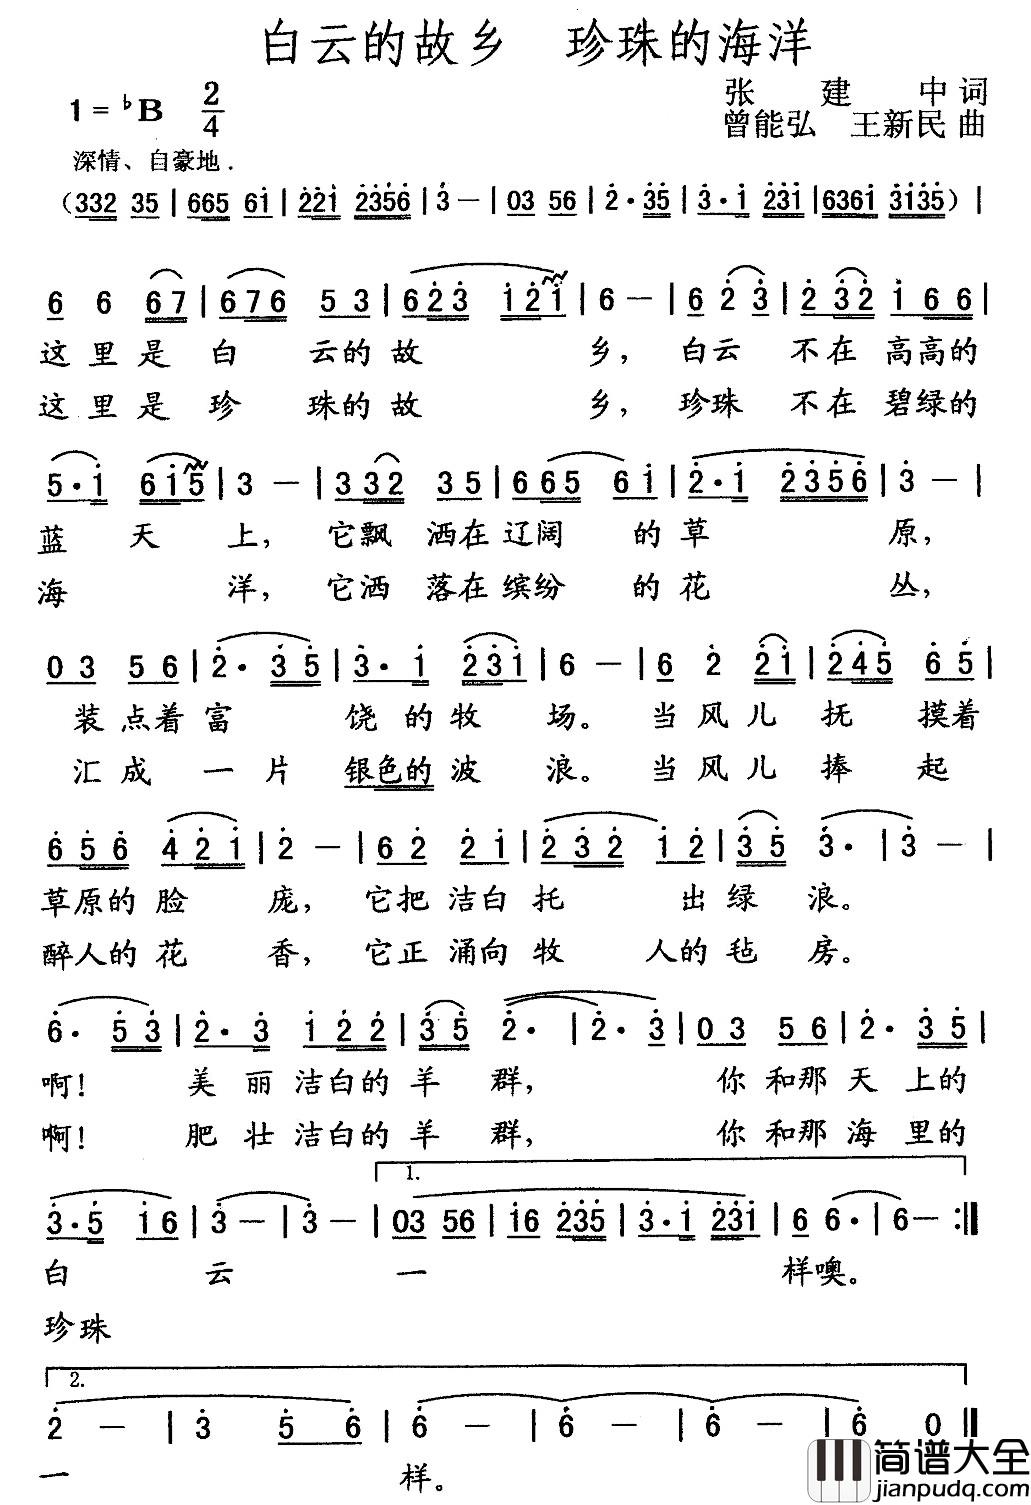 白云的故乡 珍珠的海洋
1=♭B 2/4
张建中 词
曾能弘 王新民 曲
深情、自豪地.
(332 35 | 665 61 | 221 2356 | 3 — | 03 56 | 2·35 | 3·1 231 | 6361 3135) |
6 6 67 | 676 53 | 623 121 | 6 — | 6 2 3 | 2 32 1 66 |
这里是白云的故乡，白云不在高高的
这里是珍珠的故乡，珍珠不在碧绿的
5·1 615 | 3 — | 332 35 | 665 61 | 2·1 2356 | 3 — |
蓝天上，它飘洒在辽阔的草原，
海洋，它洒落在缤纷的花丛，
03 56 | 2·35 | 3·1 231 | 6 — | 6 2 21 | 245 65 |
装点着富饶的牧场。当风儿抚摸着
汇成一片银色的波浪。当风儿捧起
656 421 | 2 — | 62 21 | 232 12 | 35 3· | 3 — |
草原的脸庞，它把洁白托出绿浪。
醉人的花香，它正涌向牧人的毡房。
6·53 | 2·3 122 | 35 2· | 2·3 | 03 56 | 2·35 |
啊！美丽洁白的羊群，你和那天上的
啊！肥壮洁白的羊群，你和那海里的
1.
3·5 16 | 3 — | 3 — | 03 56 | 16 235 | 3·1 231 | 6 6· | 6 — :||
白云一样噢。
珍珠
2.
2 — | 3 56 | 6 — | 6 — | 6 — | 6 0 ||
一样。
简谱大全
jianpudq.com